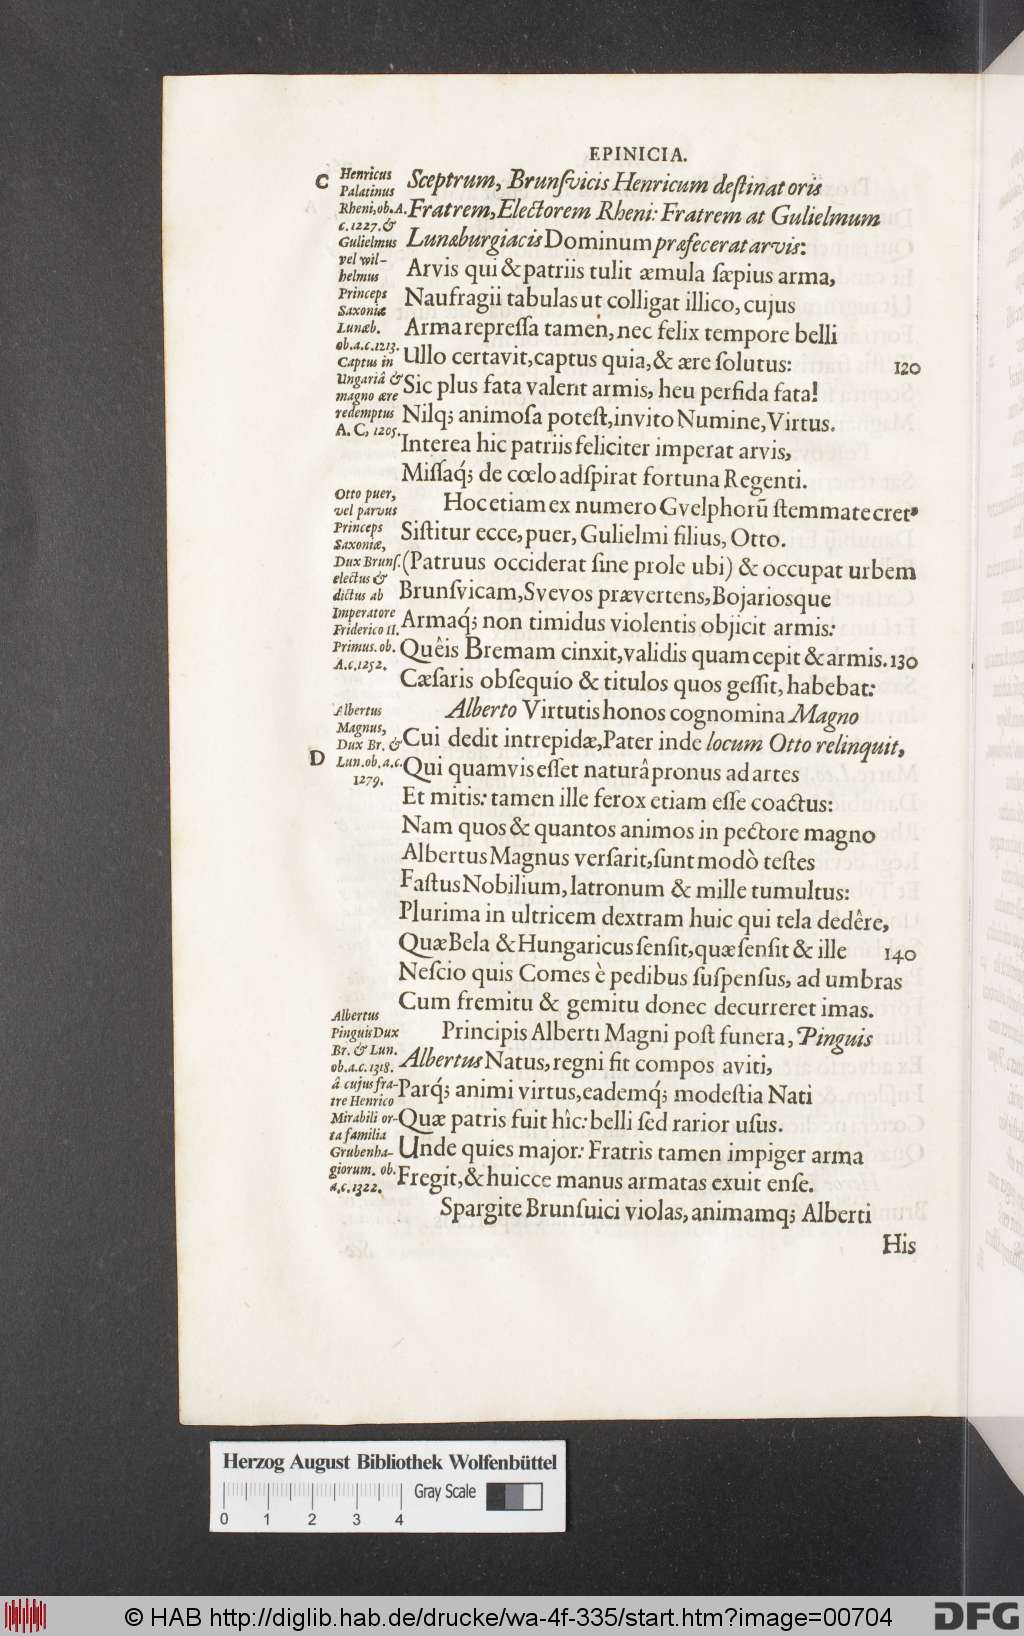 EPINICIA.
C
Henricus
Palatinus
Rheni, ob. A.
c. 1227. &
Gulielmus
vel wil-
helmus
Princeps
Saxoniæ
Lunæb.
ob. a. c. 1213.
Captus in
Ungariâ &
magno ære
redemptus
A. C, 1205.
Sceptrum, Brunſvicis Henricum deſtinat oris
Fratrem, Electorem Rheni: Fratrem at Gulielmum
Lunæburgiacis Dominum præfecerat arvis:
Arvis qui & patriis tulit æmula ſæpius arma,
Naufragii tabulas ut colligat illico, cujus
Arma repreſſa tamen, nec felix tempore belli
Ullo certavit, captus quia, & ære ſolutus: 120
Sic plus fata valent armis, heu perfida fata!
Nilq; animoſa poteſt, invito Numine, Virtus.
Interea hic patriis feliciter imperat arvis,
Miſſaq́; de cœlo adſpirat fortuna Regenti.
Otto puer,
vel parvus
Princeps
Saxoniæ,
Dux Brunſ.
electus &
dictus ab
Imperatore
Friderico II.
Primus. ob.
A. c. 1252.
Hoc etiam ex numero Gvelphorũ ſtemmate cret⁹
Siſtitur ecce, puer, Gulielmi filius, Otto.
(Patruus occiderat ſine prole ubi) & occupat urbem
Brunſvicam, Svevos prævertens, Bojariosque
Armaq́; non timidus violentis objicit armis:
Quêis Bremam cinxit, validis quam cepit & armis. 130
Cæſaris obſequio & titulos quos geſſit, habebat:
D
Albertus
Magnus,
Dux Br. &
Lun. ob. a. c.
1279.
Alberto Virtutis honos cognomina Magno
Cui dedit intrepidæ, Pater inde locum Otto relinquit,
Qui quamvis eſſet naturâ pronus ad artes
Et mitis: tamen ille ferox etiam eſſe coactus:
Nam quos & quantos animos in pectore magno
Albertus Magnus verſarit, ſunt modò teſtes
Faſtus Nobilium, latronum & mille tumultus:
Plurima in ultricem dextram huic qui tela dedêre,
Quæ Bela & Hungaricus ſenſit, quæ ſenſit & ille 140
Neſcio quis Comes è pedibus ſuſpenſus, ad umbras
Cum fremitu & gemitu donec decurreret imas.
Albertus
Pinguis Dux
Br. & Lun.
ob. a. c. 1318.
â cujus fra-
tre Henrico
Mirabili or-
ta familia
Grubenha-
giorum. ob.
a. c. 1322.
Principis Alberti Magni poſt funera, Pinguis
Albertus Natus, regni fit compos aviti,
Parq́; animi virtus, eademq́; modeſtia Nati
Quæ patris fuit hîc: belli ſed rarior uſus.
Unde quies major: Fratris tamen impiger arma
Fregit, & huicce manus armatas exuit enſe.
Spargite Brunſuici violas, animamq; Alberti
His
Herzog August Bibliothek Wolfenbüttel
Gray Scale
0 1 2 3 4
© HAB http://diglib.hab.de/drucke/wa-4f-335/start.htm?image=00704
DFG